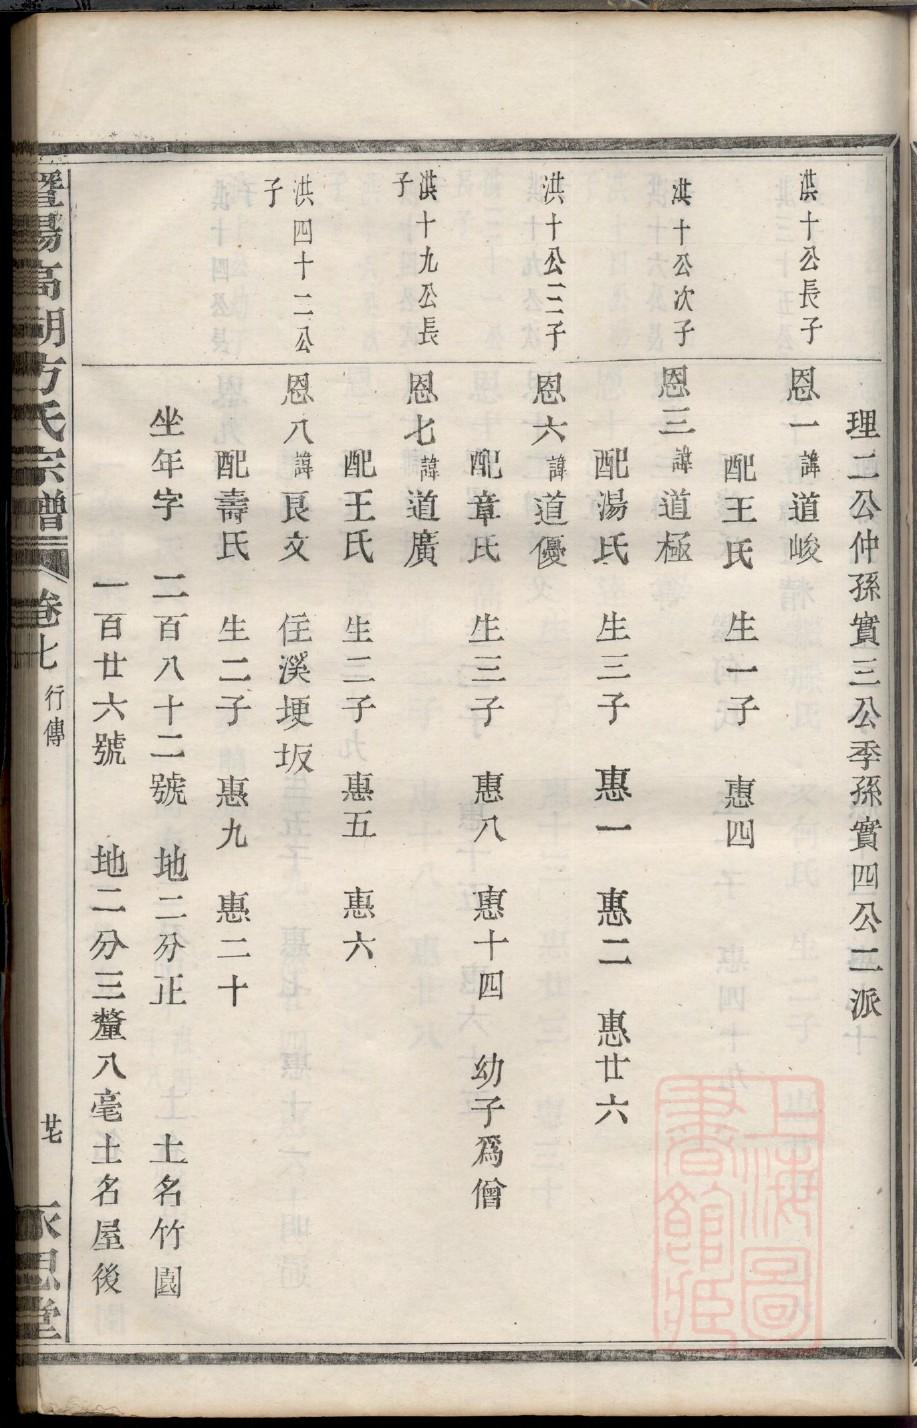 理二公仲孫實三公季孫實四公二派
洪十公長子
恩一諱道峻
配王氏 生一子 惠四
洪十公次子
恩三諱道極
配湯氏 生三子 惠一 惠二 惠廿六
洪十公三子
恩六諱道優
配章氏 生三子 惠八 惠十四 幼子爲僧
洪十九公長子
恩七諱道廣
配王氏 生二子 惠五 惠六
洪四十二公子
恩八諱良文 住溪埂坂
配壽氏 生二子 惠九 惠二十
坐年字 二百八十二號 地二分正 土名竹園
一百廿六號 地二分三釐八毫土名屋後
暨陽高湖方氏宗譜 卷七 行傳 廿七 永思堂
上海圖書館藏